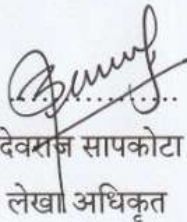 देवराज सापकोटा
लेखा अधिकृत